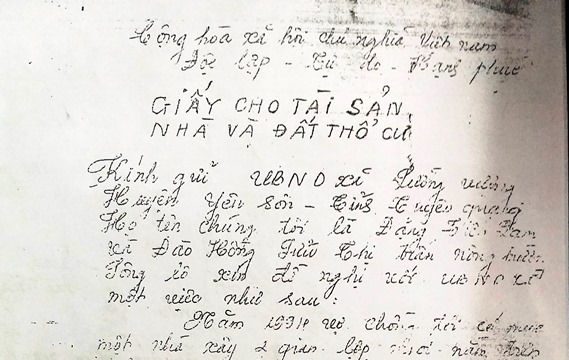 Cộng hòa xã hội chủ nghĩa Việt nam
Độc lập - Tự do - Hạnh phúc
GIẤY CHO TÀI SẢN
NHÀ VÀ ĐẤT THỔ CƯ
Kính gửi UBND xã Lưỡng vượng
Huyện Yên Sơn - Tỉnh Tuyên quang
Họ tên chúng tôi là Đặng
và Đào Hồng
Tông tôi xin đề nghị với UBND xã
một việc như sau:
Năm 1991 vợ chồng tôi có mua
một nhà xây 2 gian lợp